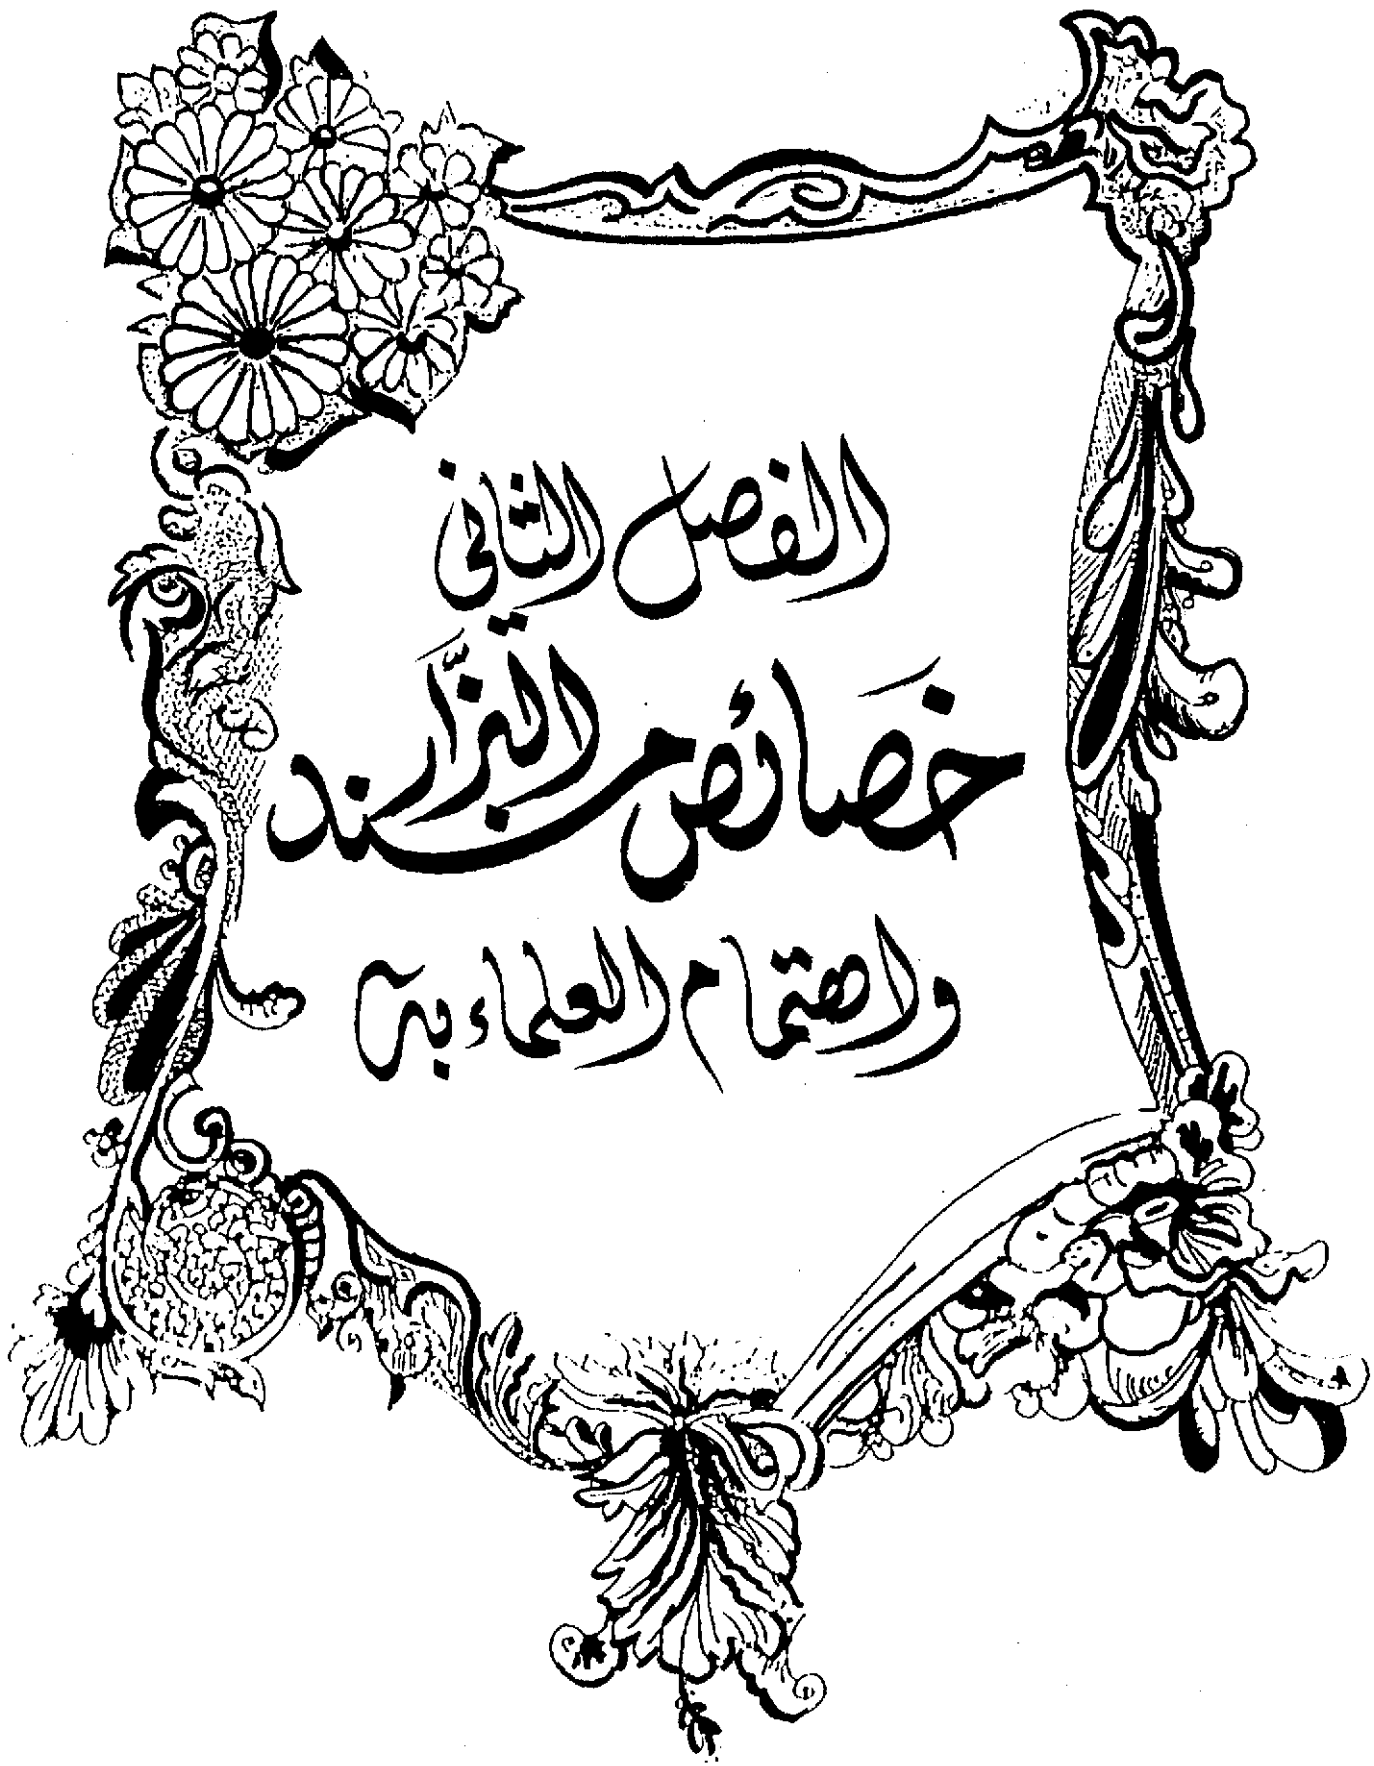 الفصل الثاني
خَصَائص مسند البزَّار
واهتمام العلماء به